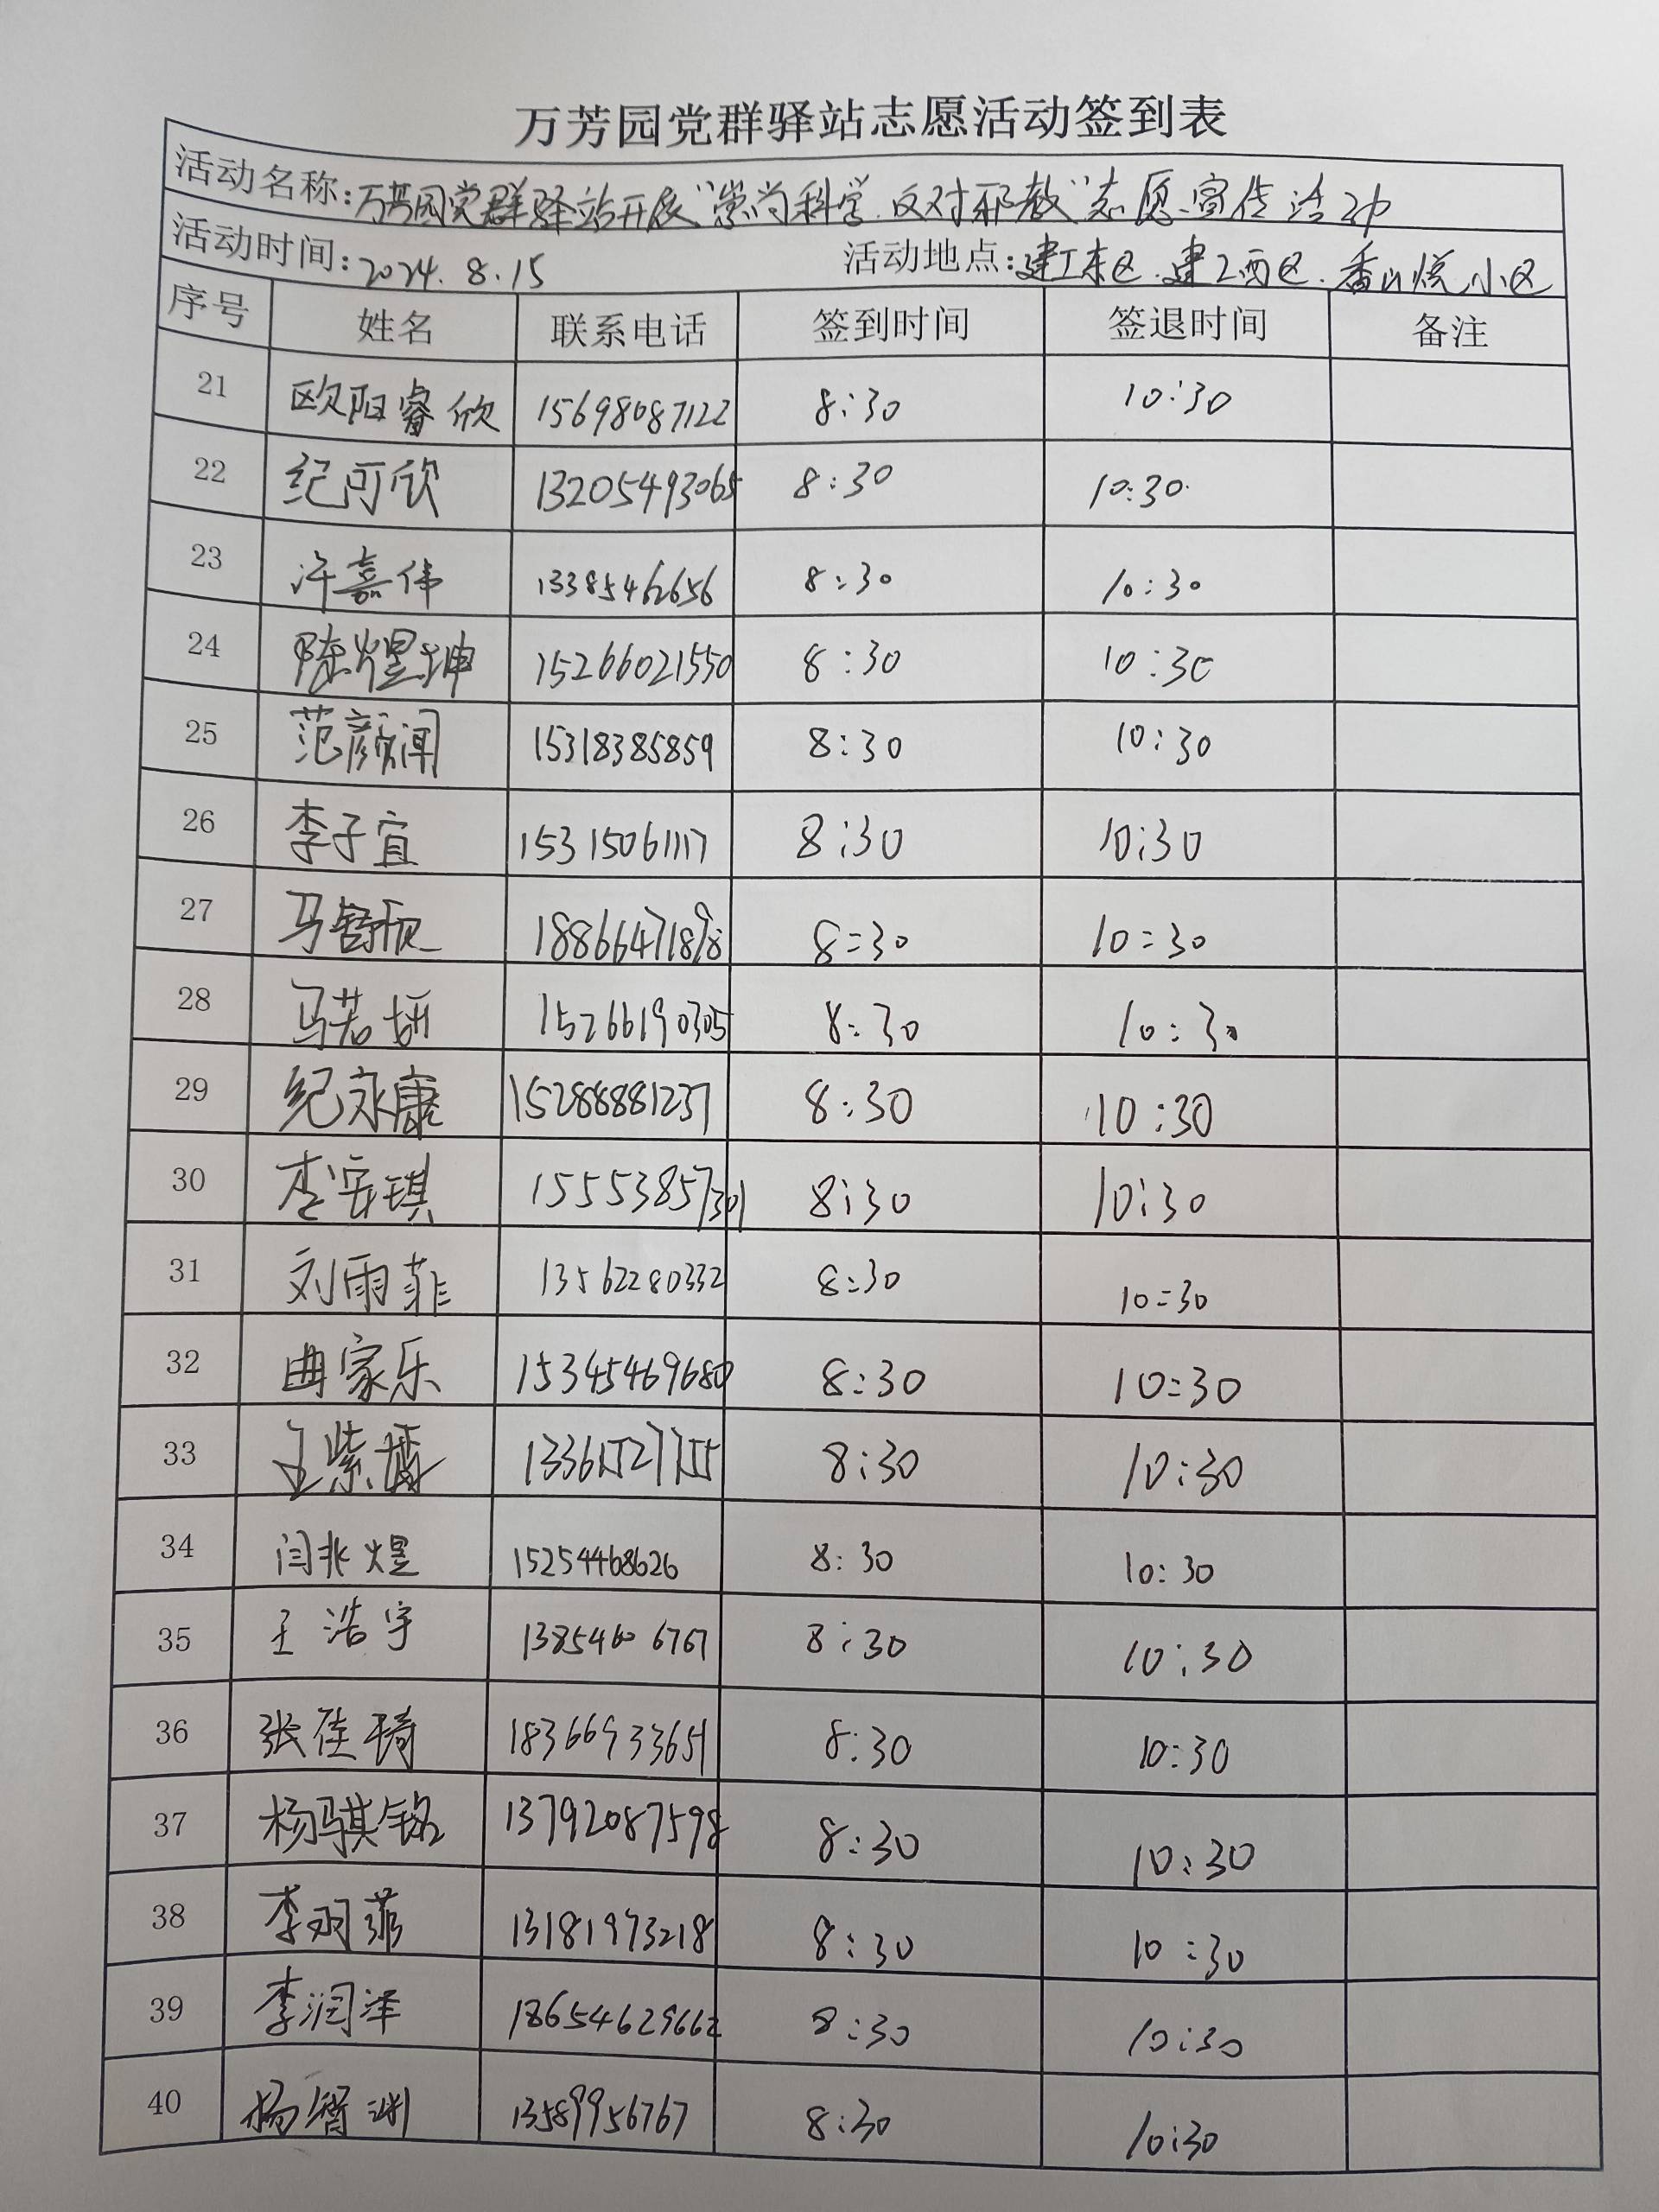 万芳园党群驿站志愿活动签到表
活动名称:万芳园党群驿站开展“崇尚科学.反对邪教”志愿宣传活动
活动时间:2024.8.15 活动地点:建工东区.建工西区.香山悦小区
序号 姓名 联系电话 签到时间 签退时间 备注
21 欧阳睿欣 15698087122 8:30 10:30
22 纪可欣 13205493065 8:30 10:30
23 许嘉伟 13385462656 8:30 10:30
24 陈煜坤 15266021550 8:30 10:30
25 范颜闻 15318385859 8:30 10:30
26 李子宜 15315061117 8:30 10:30
27 马舒欣 18866471898 8:30 10:30
28 马若妍 15266190305 8:30 10:30
29 纪永康 15288881237 8:30 10:30
30 李安琪 15553857301 8:30 10:30
31 刘雨菲 13562280332 8:30 10:30
32 曲家乐 15345469680 8:30 10:30
33 王紫 13361527155 8:30 10:30
34 闫兆煜 15254468626 8:30 10:30
35 王浩宇 13854606767 8:30 10:30
36 张佳琦 18366933651 8:30 10:30
37 杨骐铭 13792087598 8:30 10:30
38 李羽菲 13181973218 8:30 10:30
39 李润泽 18654629662 8:30 10:30
40 杨智渊 13589956767 8:30 10:30